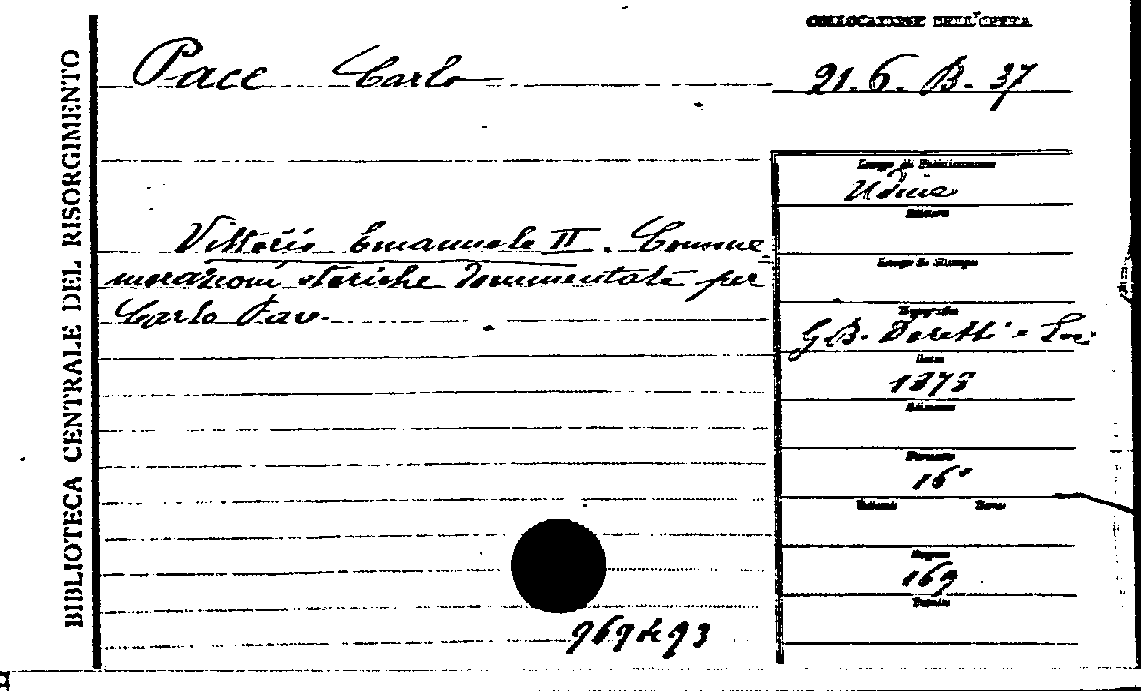 BIBLIOTECA CENTRALE DEL RISORGIMENTO
COLLOCAZIONE DELL'OPERA
Pace Carlo
21.6.B.37
Vittorio Emanuele II. Comme
morazioni storiche documentate per
Carlo Pace.
Luogo di Pubblicazione
Udine
Editore
Luogo di Stampa
Tipografia
G.B. Doretti e Soci
Data
1878
Edizione
Formato
16°
Volumi Tomo
Pagine
169
Tavole